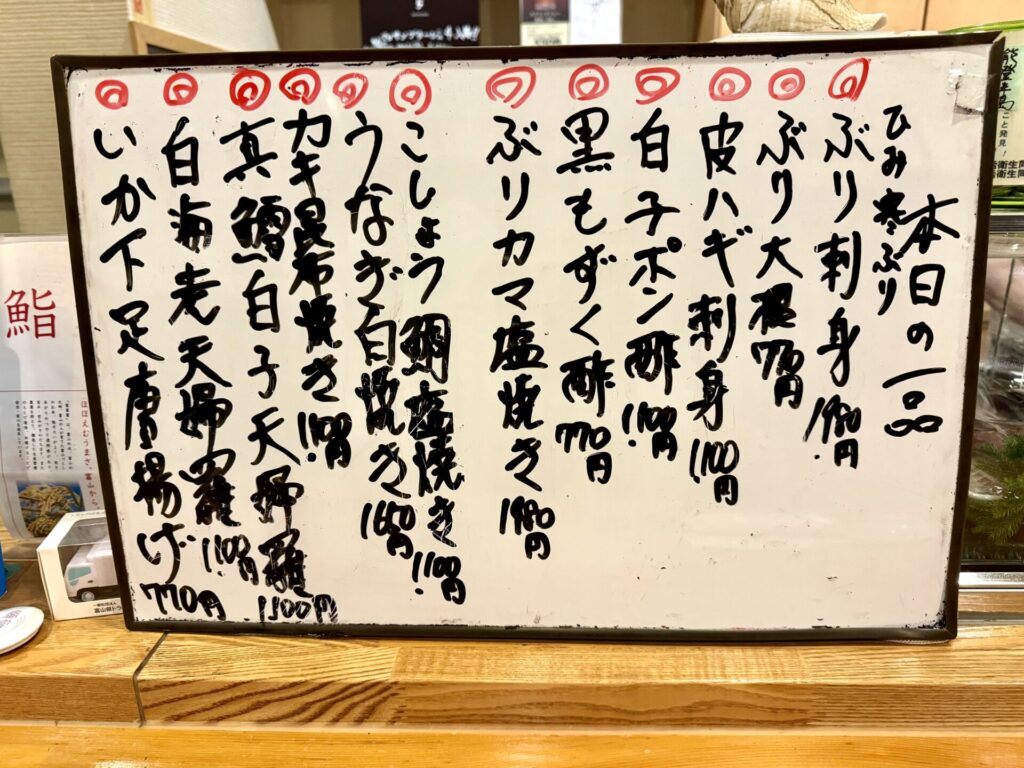 本日の一品
ひみ寒ぶり
ぶり刺身 1980円
ぶり大根 770円
皮ハギ刺身 1100円
白子ポン酢 1100円
黒もずく酢 770円
ぶりカマ塩焼き 1980円
こしょう鯛塩焼き 1100円
うなぎ白焼き 1650円
カキ昆布焼き 1100円
真鱈白子天婦羅 1100円
白海老天婦羅 1100円
いか下足唐揚げ 770円
鮨
ほほえむうまさ、富山から
能登半島